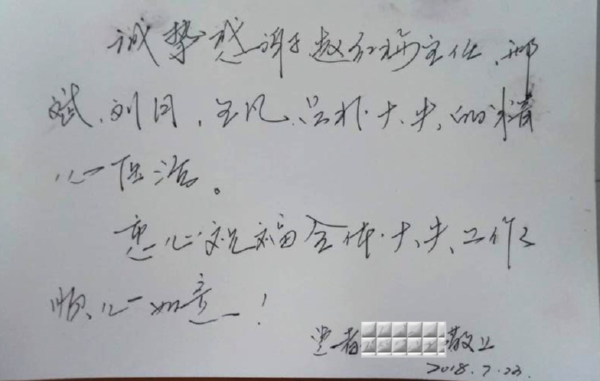 诚挚感谢赵红梅主任、邢
斌、刘同、王凡、吕朴大夫的精
心医治。
衷心祝福全体大夫工作
顺心如意！
患者 敬上
2018.7.23.